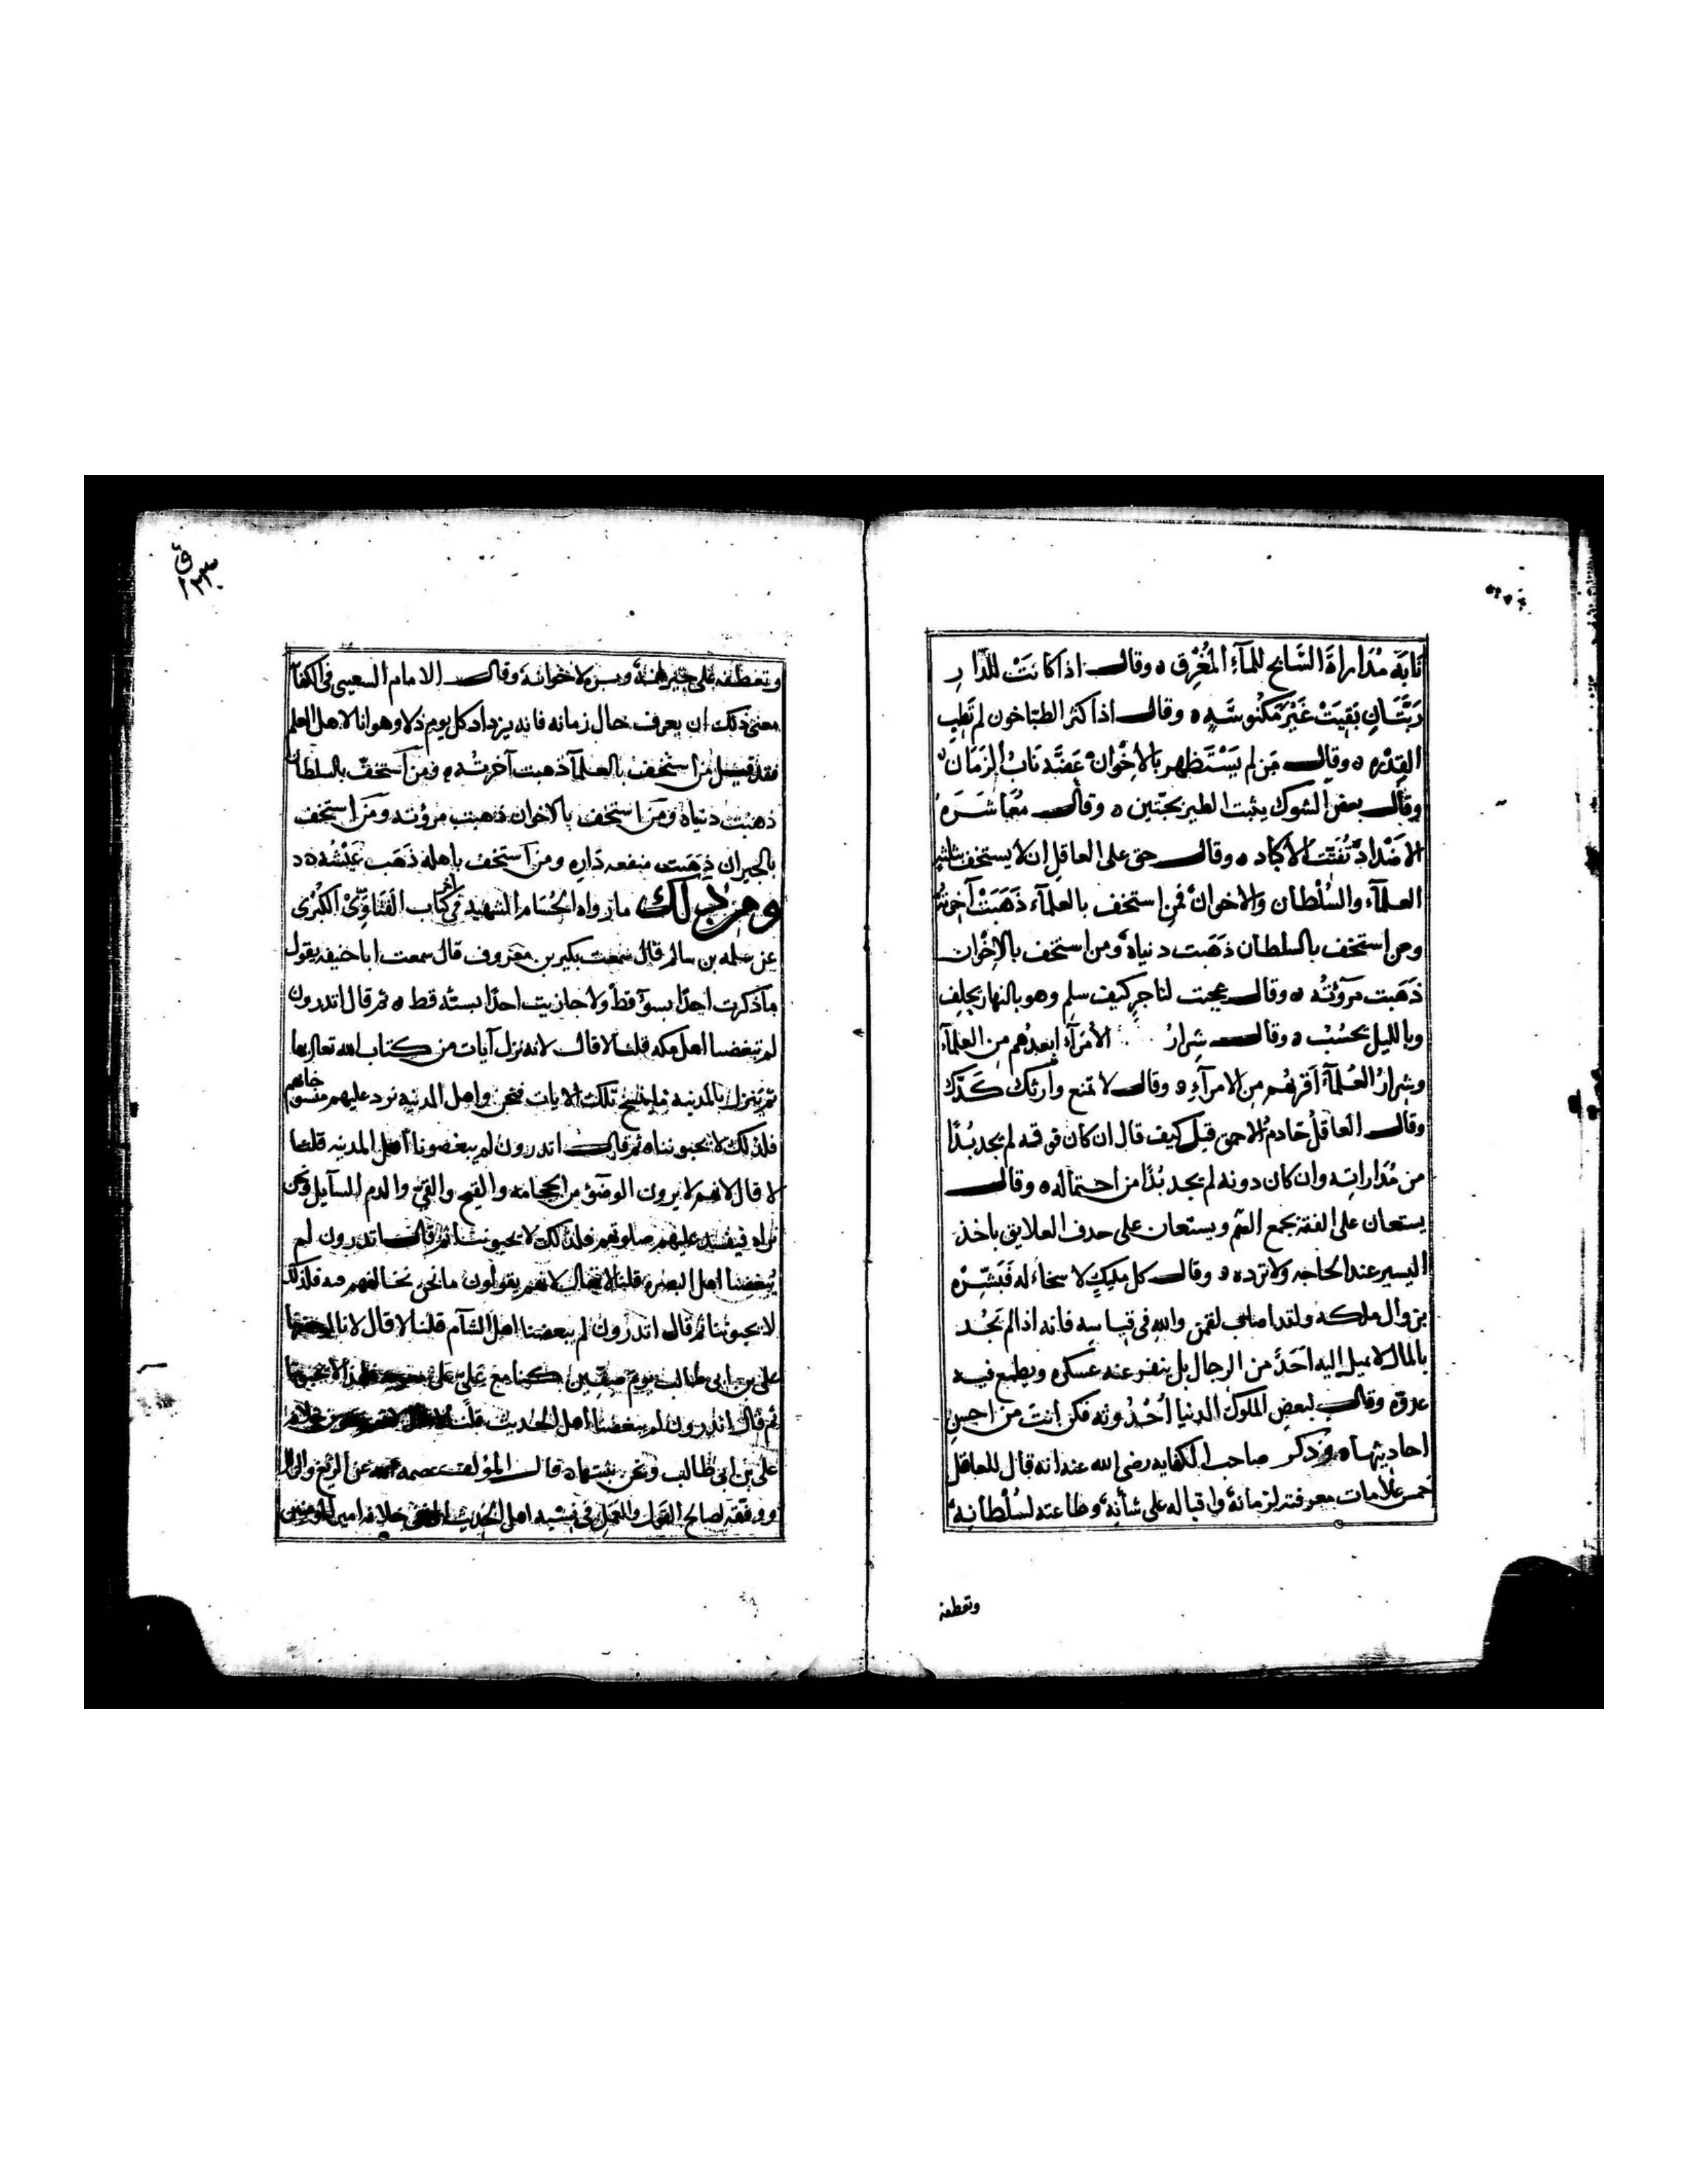 نابه مُدَاراة السَّابح للمآء المُغْرِق ٥ وقال اذا كانَتْ للدَّارِ
رَبَّتَانِ بَقِيَتْ غَيْرَ مَكْنُوسَةٍ ٥ وقال اذا كثر الطبّاخون لم تَطِب
القِدْر ٥ وقال مَن لم يَسْتَظهر بالاِخْوان عَضَّه نَابُ الزَمَان
وقال بعض الشوك يثبت الطير بجنتين ٥ وقال مُعَاشَرَه
الاضْداد تُفَتِّت الأكباد ٥ وقال حق على العاقل ان لا يستخف بثلثه
العلمآء والسُلْطان والاخوان فمن استخف بالعلمآء ذَهَبَتْ آخرته
ومن استخف بالسلطان ذَهَبت دنياه ومن استخف بالاِخْوان
ذَهَبت مروّتُه ٥ وقال عجبت لتاجرٍ كيف سلم وهو بالنهار يحلِف
وبالليل يحسُبْ ٥ وقال شِرارُ الأمَرآء ابعدُهم من العلمآء
وشِرارُ العُلمآء اقربُهم مِن الامرآء ٥ وقال لا تمنع وارثك كَدّك
وقال العاقلُ خادمُ الاحمق قيل كيف قال ان كان فوقه لم يجد بُدًّا
من مُدَاراته وان كان دونه لم يجد بُدًّا من احتماله ٥ وقال
يستعان على الفقه بجمع الهَمّ ويستعان على حذف العلايق باخذ
اليسير عند الحاجه ولا تزده ٥ وقال كل مليكٍ لا سخاء له فَبَشّرْه
بزوال ملكه ولقد اصاب لقمن والله فى قياسه فانه اذا لم يَجُد
بالمال لا يميل اليه احَدٌ من الرجال بل ينفر عنه عسكره ويطمع فيه
عدوّه وقال لبعض الملوك الدنيا اُحْدُوثه فكن انت من احسن
احاديثها ٥ وذكر صاحب الكفايه رضى الله عنه انه قال للعاقل
خمس علامات معرفته لزمانه واقباله على شأنه وطاعته لسُلْطانه
وتعطفه
ق
٢٣٣
وتعطفه على جيرانه وبرّه لاخوانه وقال الامام السعيى فى الكفآ
معنى ذلك ان يعرف حال زمانه فانه يزداد كل يوم ذلا وهوانا لاهل العلم
فقد قيل من استخف بالعلمآ ذهبت آخرتُه ومن استخفّ بالسلطان
ذهبت دنياه ومَن استخف بالاخوان ذهبت مروّته ومَن استخف
بالجيران ذهَبت منفعه دَارِه ومن استخف باهله ذَهَب عَيْشُه ٥
ومن ذلك ما رواه الحُسَام الشهيد فى كتاب الفَتَاوِىْ الكُبْرى
عن سلمه بن سالم قال سَمعت بكير بن معروف قال سمعت ابا حنيفه يقول
ما ذكرت احدًا بسوءٍ قط ولا جازيت احدًا بسيئه قط ٥ ثم قال اتدرون
لم تبغضنا اهل مكه قلنا لا قال لانه نزل آيات من كتاب الله تعالى بها
ثم تنزل بالمدينه ما ينسخ تلك الايات فنحن واهل المدينه نرد عليهم منسوخاتهم
فلذلك لا يحبوننا ٥ ثم قال اتدرون لم يبغضونا أهل المدينه قلنا
لا قال لانهم لا يرون الوضوء من الحجامه والقيح والقيّ والدم السآيل ونحن
نراه فيفسد عليهم صلوتهم فلذلك لا يحبوننا ثم قال اتدرون لم
يُبغضنا اهل البصره قلنا لا فقال لانهم يقولون ما نحن نخالفهم فلذلك
لا يحبوننا ثم قال اتدرون لم يبغضنا اهل الشآم قلنا لا قال لانا
على بن ابى طالب يوم صفّين كنا مع على على لا يحبونا
ثم قال اتدرون لم يبغضنا اهل الحديث قلنا
على بن ابى طالب ونحن نثبتها ٥ قال المؤلف عصمه الله عن الزيغ والزلل
ووفقه لصالح القول والعمل فى اهل الحديث خلافه امير المؤمنين